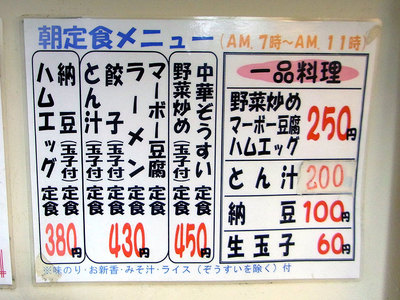 朝定食メニュー (A.M. 7時～A.M. 11時)
中華ぞうすい定食
野菜炒め(玉子付)定食
450円
マーボー豆腐定食
ラーメン定食
餃子(玉子付)定食
とん汁(玉子付)定食
430円
納豆(玉子付)定食
ハムエッグ定食
380円
一品料理
野菜炒め
マーボー豆腐
ハムエッグ
250円
とん汁 200
納豆 100円
生玉子 60円
※味のり・お新香・みそ汁・ライス(ぞうすいを除く)付